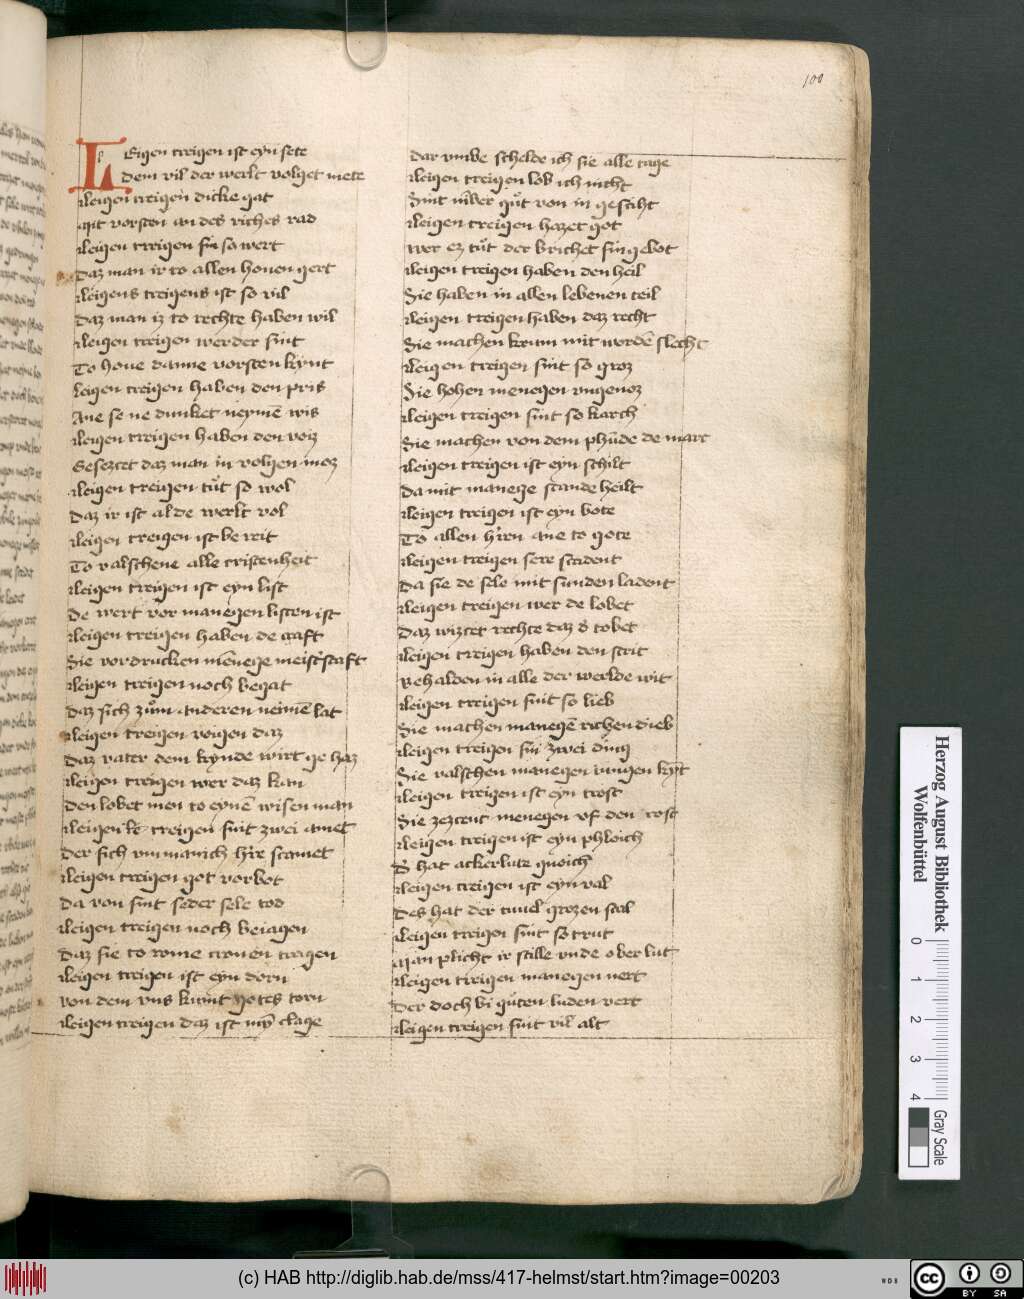 100
LEigen treigen ist eyn sete
Dem vil der werlt volget mete
Leigen treigen dicke gat
Mit vorsten an des riches rad
Leigen treigen sin so wert
Daz man ir to allen houen gert
Leigens treigens ist so vil
Daz man iz to rechte haben wil
Leigen treigen werder sint
To houe danne vorsten kynt
Leigen treigen haben den pris
Ane se ne dunket neymē wis
Leigen treigen haben den voiz
Geseztet daz man in volgen moz
Leigen treigen tůt so wol
Daz ir ist al de werlt vol
Leigen treigen ist be reit
To valschene alle cristenheit
Leigen treigen ist eyn list
De wert vor manegen listen ist
Leigen treigen haben de craft
Sie vordrucken mēnege meist'scaft
Leigen treigen noch begat
Daz sich zům anderen neimē lat
Leigen treigen vogen daz
Daz vater dem kynde wirt ge haz
Leigen treigen wer daz kan
Den lobet men to eynē wisen man
Leigen treigen sint zwei amet
Der sich vm manich h're scamet
Leigen treigen got vorbot
Da von sint seder sele tod
Leigen treigen noch beiagen
Daz sie to rome cronen tragen
Leigen treigen ist eyn dorn
Von dem vns kumt gotes torn
Leigen treigen daz ist mȳ clage
Dar vmbe schelde ich sie alle tage
Leigen treigen lob ich nicht
Sint nīber gůt von in gesciht
Leigen treigen hazet got
Wer ez tůt der brichet sin gebot
Leigen treigen haben den heil
Sie haben in allen lebenen teil
Leigen treigen haben daz recht
Sie machen krum mit wordē slecht
Leigen treigen sint so groz
Sie hohen menegen vngenoz
Leigen treigen sint so karch
Sie machen von dem phūde de marc
Leigen treigen ist eyn schilt
Da mit manege scande heilt
Leigen treigen ist eyn bote
To allen h'ren ane to gote
Leigen treigen sere scadent
Da sie de sele mit sunden ladent
Leigen treigen wer de lobet
Daz wizcet rechte daz d' tobet
Leigen treigen haben den strit
Behalden in alle der werlde wit
Leigen treigen sint so lieb
Sie machen manegē richen dieb
Leigen treigen sin zwei ding
Sie valschen manegen iungen kȳt
Leigen treigen ist eyn trost
Sie zezcent menegen vf den rost
Leigen treigen ist eyn phloich
D' hat ackerlute gnoich
Leigen treigen ist eyn val
Des hat der tiuuel grozen scal
Leigen treigen sint so trut
Man plicht ir stille vnde ober lut
Leigen treigen manegen nert
Der doch bi gůten luden vert
Leigen treigen sint vil alt
Herzog August Bibliothek
Wolfenbüttel
0 1 2 3 4
Gray Scale
(c) HAB http://diglib.hab.de/mss/417-helmst/start.htm?image=00203
WDB
cc BY SA